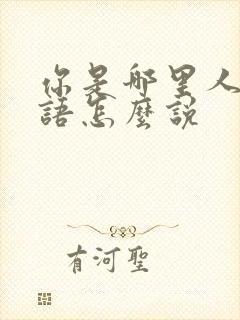 你是哪里人
語怎麼説
有河聖